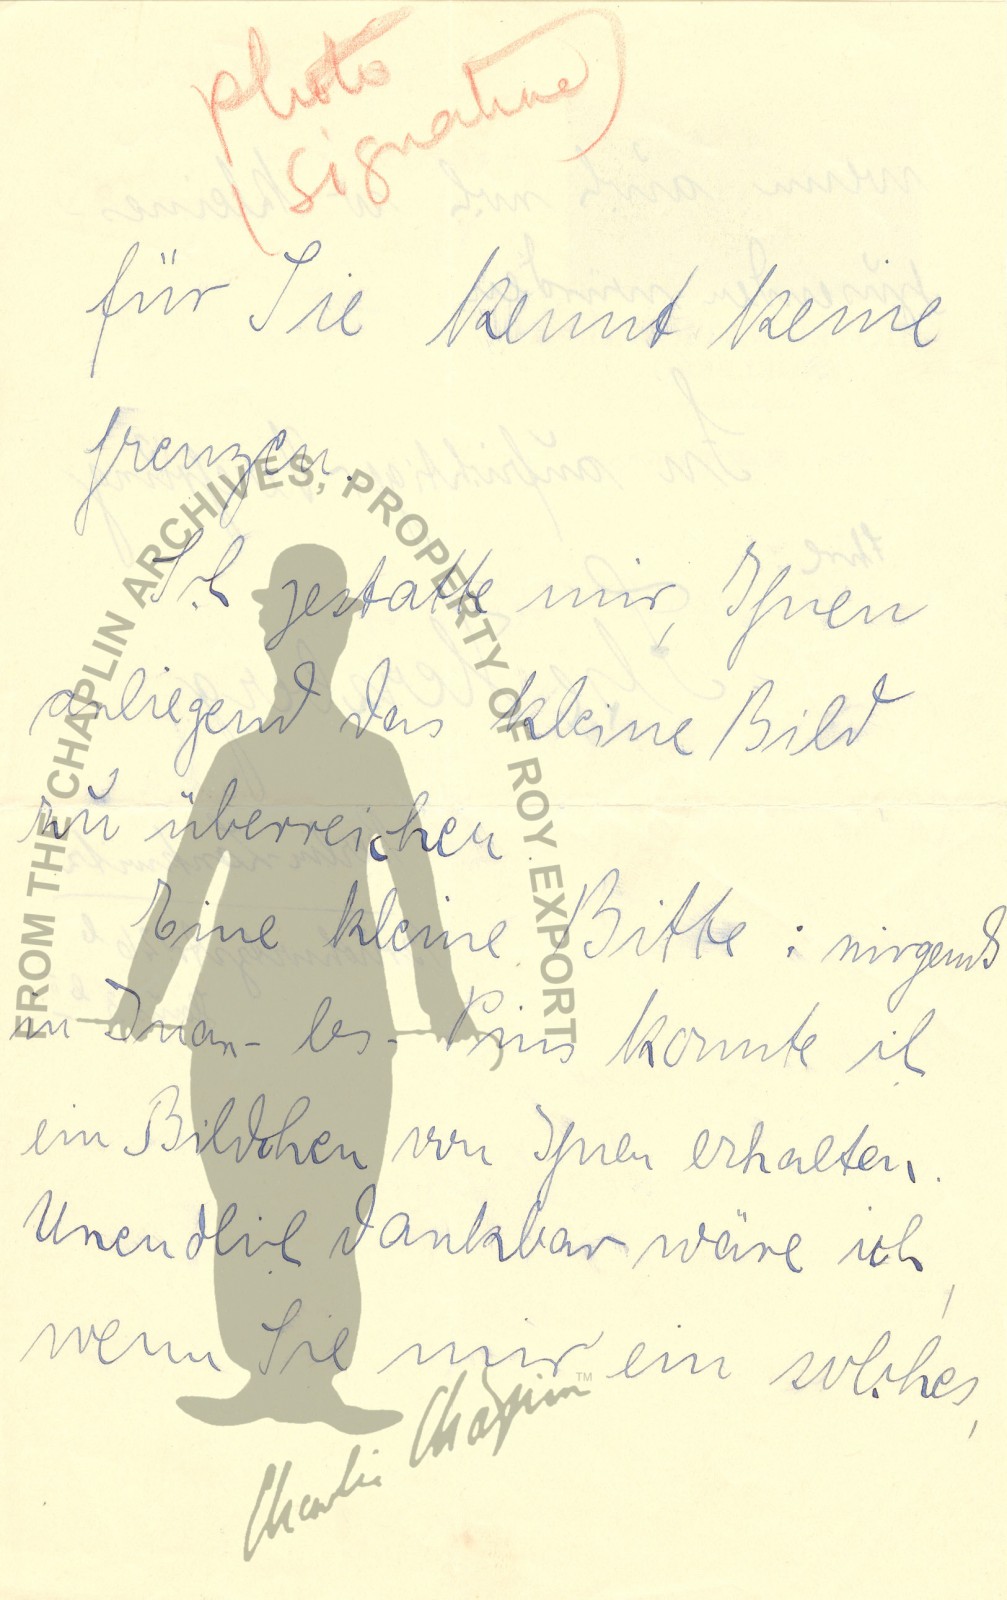 photo
(signature)
für Sie kennt keine
Grenzen.
Ich gestatte mir, Ihnen
anliegend das kleine Bild
zu überreichen
Eine kleine Bitte : nirgends
in Juan-les-Pins konnte ich
ein Bildchen von Ihnen erhalten.
Unendlich dankbar wäre ich,
wenn Sie mir ein solches,
FROM THE CHAPLIN ARCHIVES, PROPERTY OF ROY EXPORT
Charlie Chaplin ™